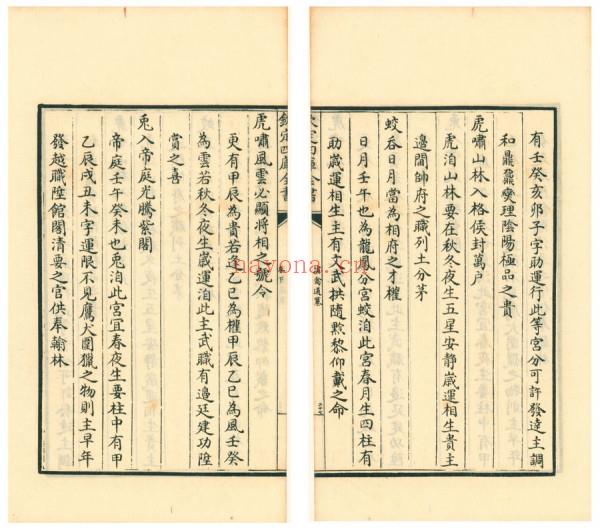 有壬癸亥卯子字助運行此等宮分可許發達主調
和鼎鼐爕理隂陽極品之貴
虎嘯山林入格侯封萬户
虎泊山林要在秋冬夜生五星安静嵗運相生貴主
邊閫帥府之職列土分茅
蛟吞日月當為相府之才權
日月壬午也為龍鳳分宮蛟泊此宮春月生四柱有
助嵗運相生主有文武拱隨黙黎仰戴之命
欽定四庫全書
虎嘯風雲必顯將相之號令
更有甲辰為貴若逢乙巳為權甲辰乙巳為風壬癸
為雲若秋冬夜生嵗運泊此主武職有邉廷建功陞
賞之喜
兎入帝庭光騰紫閣
帝庭壬午癸未也兎泊此宮宜春夜生要柱中有甲
乙辰戌丑未字運限不見鷹犬圍獵之物則主早年
發越職陞館閣清要之官供奉翰林
nayona.cn